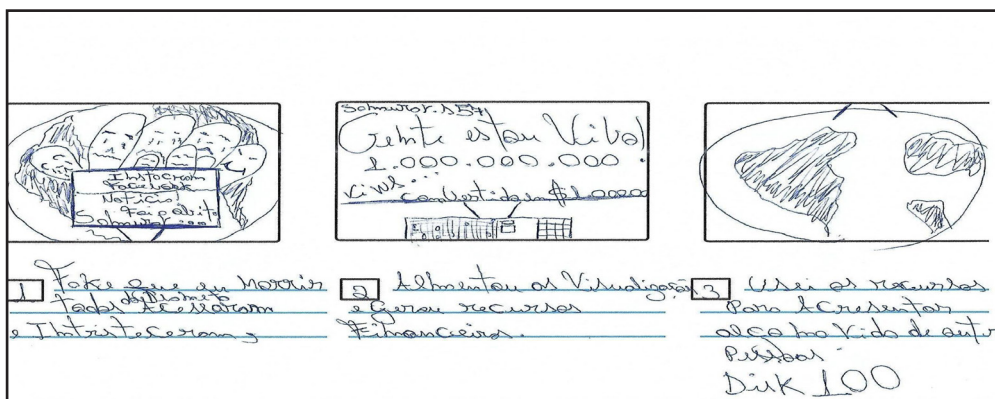 Instocram
Facebook
Notícia!
Foi a óbito
Samurar...
Samurar.s57
Gente estou Vivo!
1.000.000.000
views...
Convertido em $1.00000
1 Fake que eu Morrir
todos do Planeta Acessaram
e Intristeceram,
2 Almentou as Visualizações
e Gerou recursos
Financeiros.
3 Usei os recursos
Para Acresentar
alço na Vida de outr
Pessoas.
Disk 100